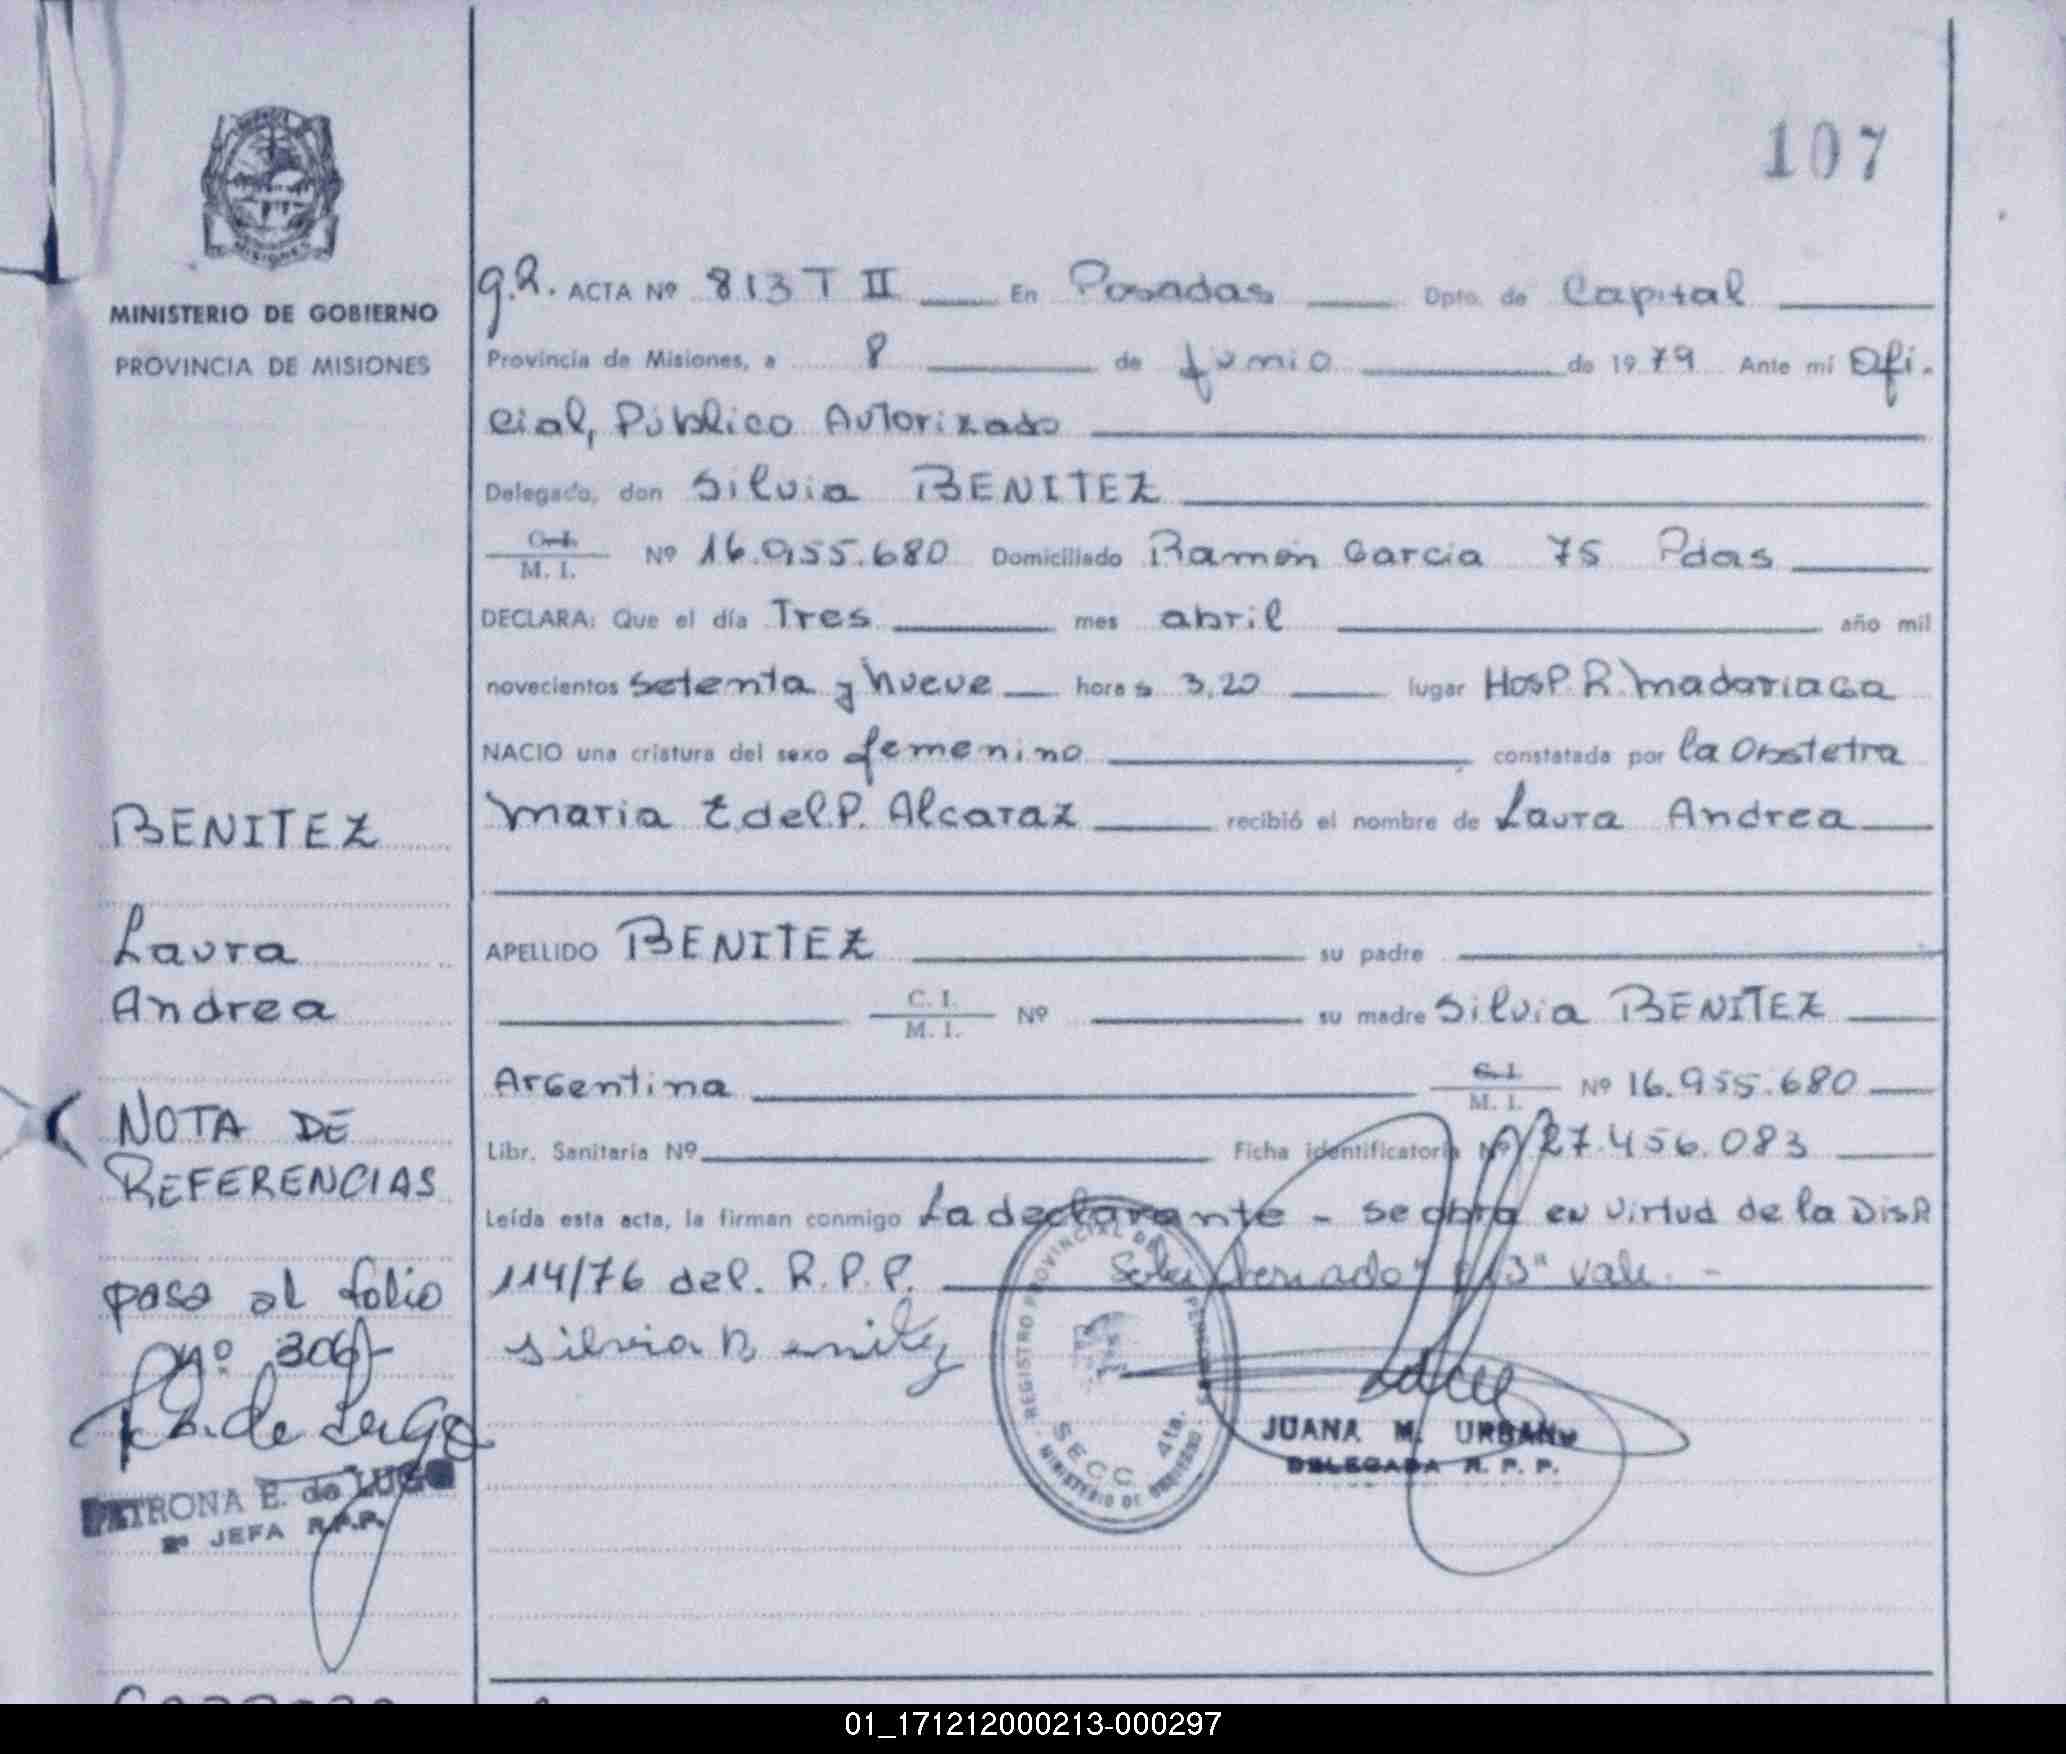 107
MINISTERIO DE GOBIERNO
PROVINCIA DE MISIONES
BENITEZ
Laura
Andrea
NOTA DE
REFERENCIAS
pasa al folio
nº 306
PETRONA E. de LUGO
2º JEFA R.P.P.
g.2. ACTA Nº 813 T II En Posadas Dpto. de Capital
Provincia de Misiones, a 8 de junio de 1979 Ante mí Ofi-
cial, Público Autorizado
Delegado, don Silvia BENITEZ
C.I. M. I. Nº 16.955.680 Domiciliado Ramón Garcia 75 Pdas
DECLARA: Que el día Tres mes abril año mil
novecientos setenta y nueve hora s 3,20 lugar Hosp. R. Madariaga
NACIO una criatura del sexo femenino constatada por la Obstetra
Maria E. del P. Alcaraz recibió el nombre de Laura Andrea
APELLIDO BENITEZ su padre
C. I. M. I. Nº su madre Silvia BENITEZ
Argentina C. I. M. I. Nº 16.955.680
Libr. Sanitaria Nº Ficha identificatoria Nº 27.456.083
Leída esta acta, la firman conmigo La declarante - se obra en virtud de la Disp.
114/76 del. R.P.P. "3" vale. -
Silvia Benitez
REGISTRO PROVINCIAL DE
SECC 4ta.
MINISTERIO DE GOBIERNO
JUANA M. URBANO
DELEGADA R. P. P.
01_171212000213-000297